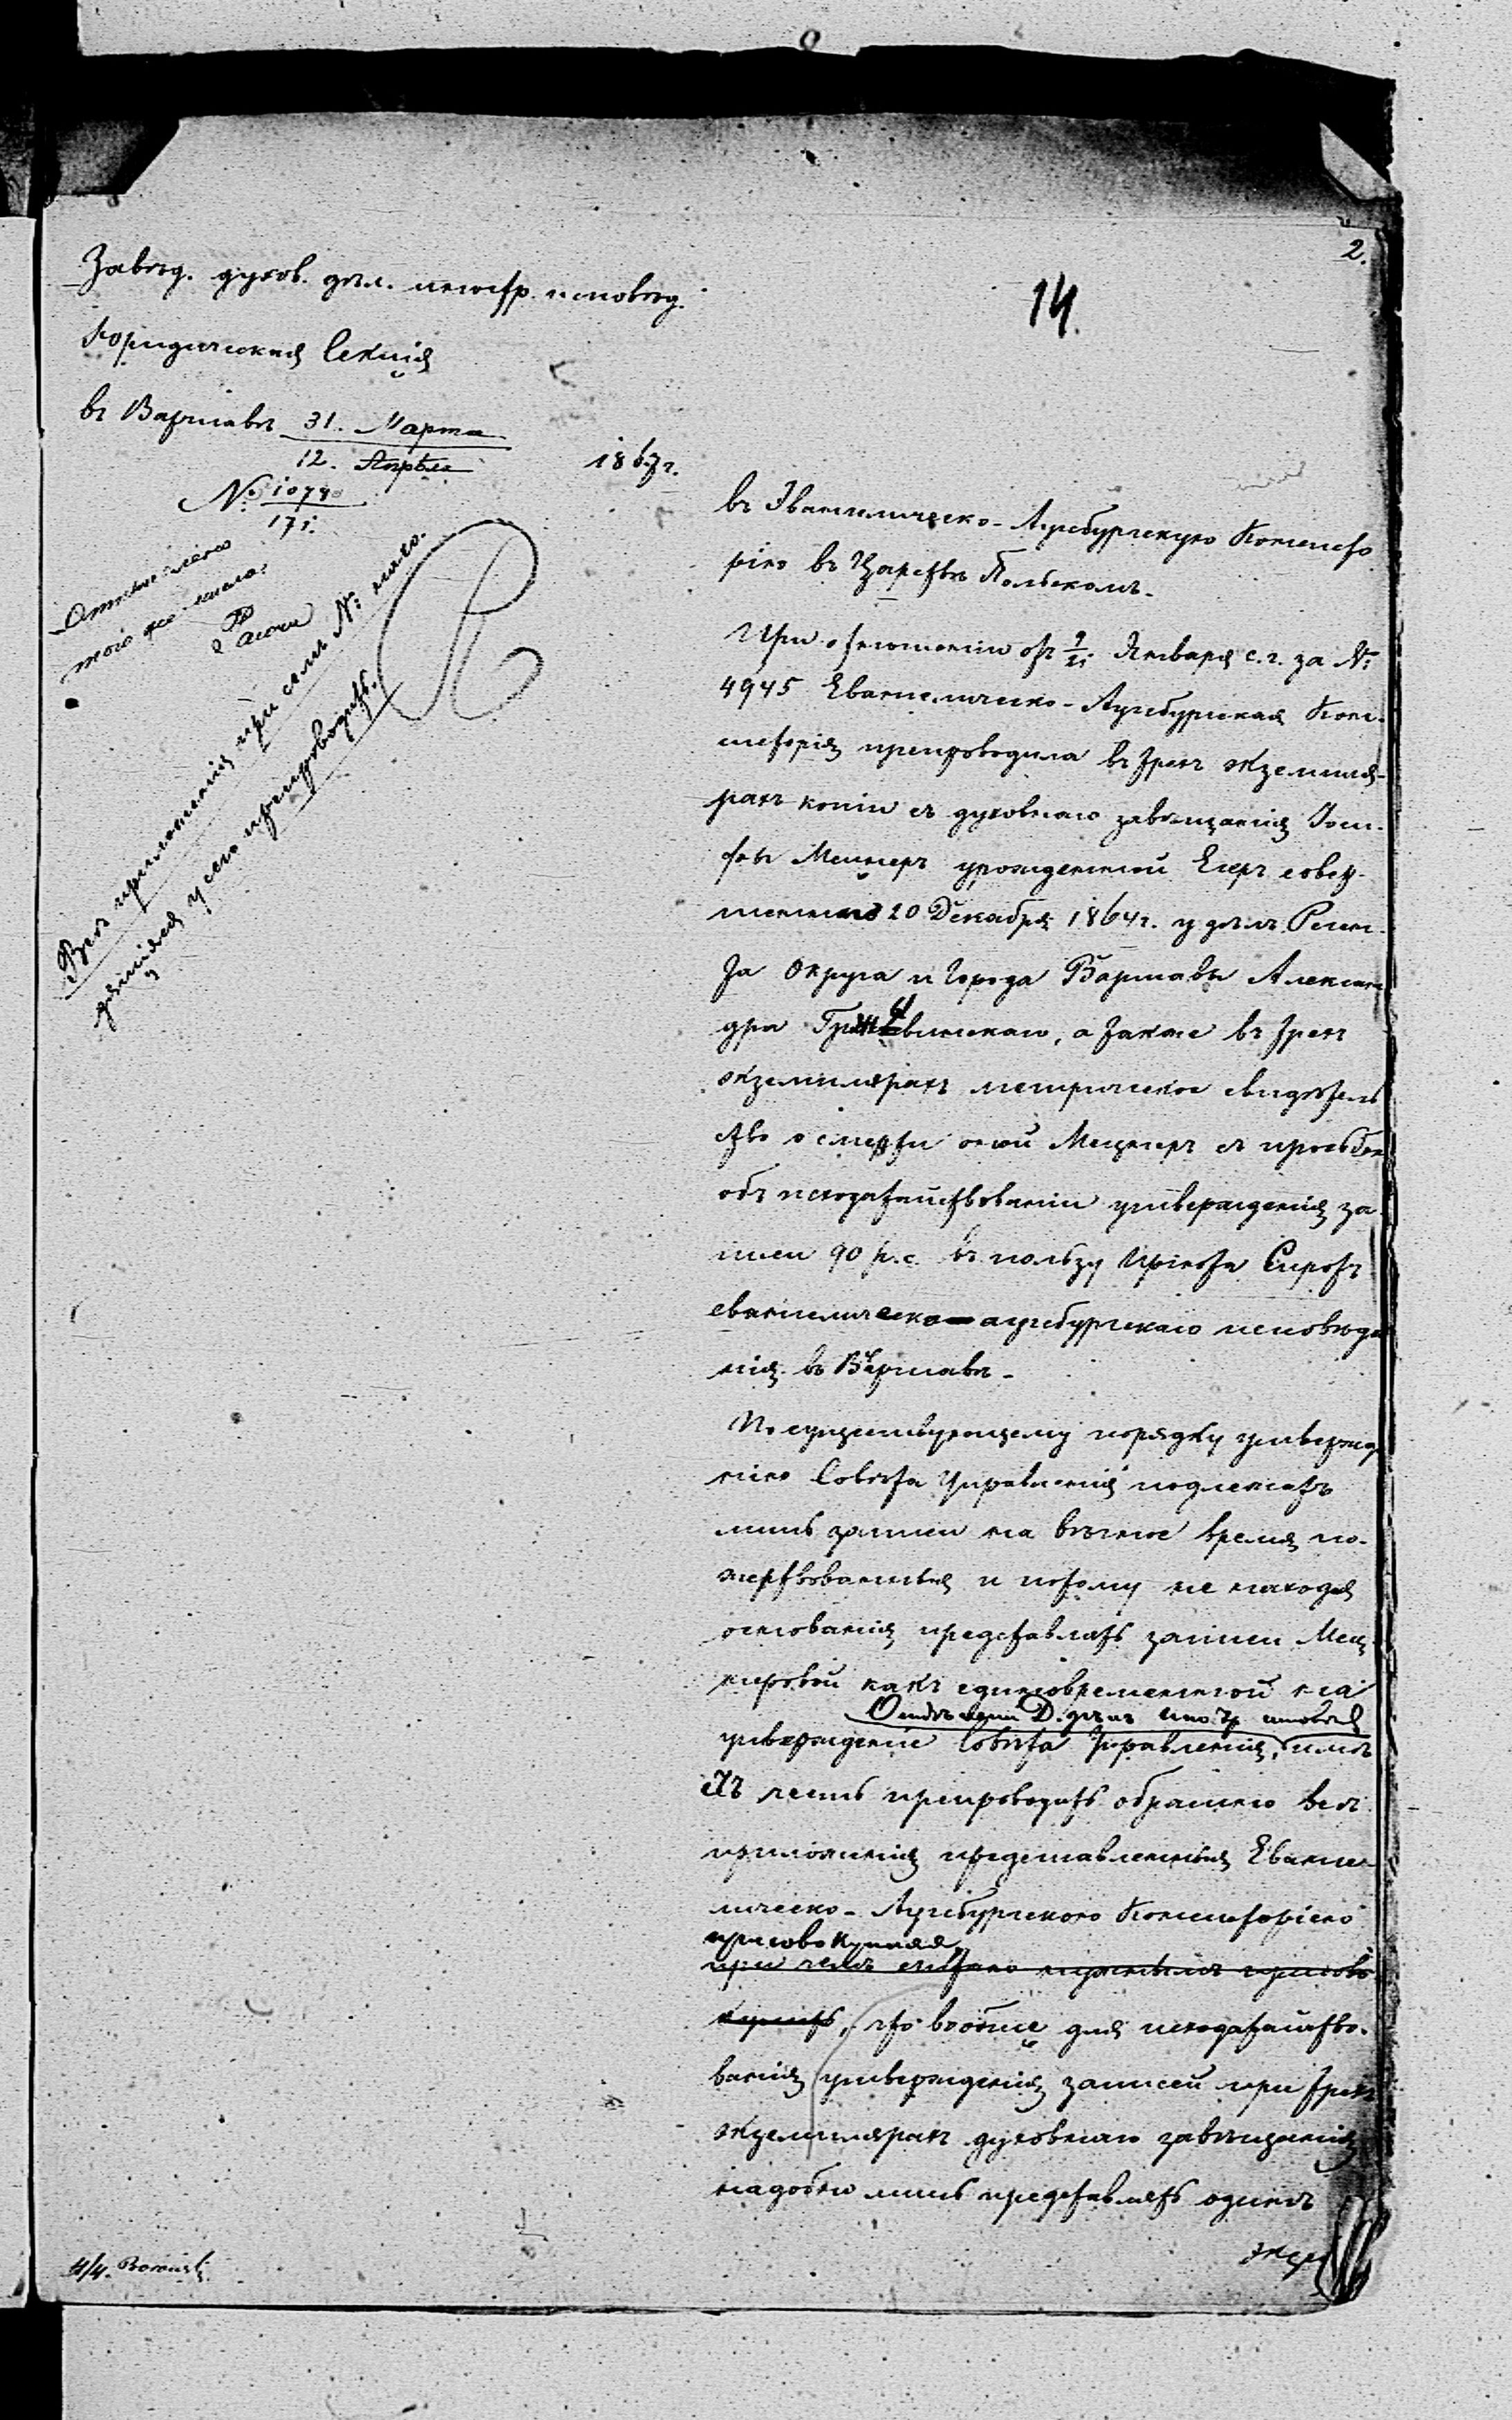 2.
14
Завѣд. духов. дѣл. иностр. исповѣд.
Юридическая Секція
въ Варшавѣ 31. Марта
12. Апрѣля
1867 г.
№ 10790
171.
Отписано
того же числа.
Всѣ приложенія при семъ №
у сего препроводить.
въ Евангелическо-Аугсбургскую Консисто
рію въ Царствѣ Польскомъ.
При отношеніи отъ 9/21 Января с.г. за №
4945 Евангелическо-Аугсбургская Конс-
систорія препроводила въ трехъ экземпля-
рахъ копіи съ духовнаго завѣщанія Іозе-
фы Мецнеръ урожденной Егеръ совер-
шеннаго 20 Декабря 1864 г. у дѣлъ Реген-
та Округа и Города Варшавы Алексан
дра винскаго, а также въ трехъ
экземплярахъ метрическое свидѣтель
ство о смерти оной Мецнеръ съ просьбою
объ исходатайствованіи утвержденія за-
писи 90 р.с. въ пользу Пріюта Сиротъ
евангелическо-аугсбургскаго исповѣда
нія въ Варшавѣ.
По существующему порядку утвержде
нію Совѣта Управленія подлежатъ
лишь записи на вѣчное время по-
жертвованныя и потому не находя
основанія представлять записи Мец-
неровой какъ единовременной на
Отдѣленіе Д. дѣлъ Иностр. исповѣд
утвержденіе Совѣта Управленія, имѣ
етъ честь препроводить обратно всѣ
приложенія представленныя Еванге-
лическо-Аугсбургскою Консисторіею
присовокупляя,
при чемъ считаю нужнымъ присово
купить, что вообще для исходатайство-
ванія утвержденія записей при трехъ
экземплярахъ духовнаго завѣщанія
надобно лишь представлять одинъ
экзем
4/4.